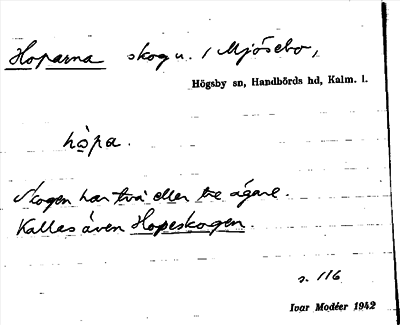 Hoparna skog u. / Mjösebo,
Högsby sn, Handbörds hd, Kalm. l.
hòpa.
Skogen har två eller tre ägare.
Kallas även Hopeskogen.
s. 116
Ivar Modéer 1942